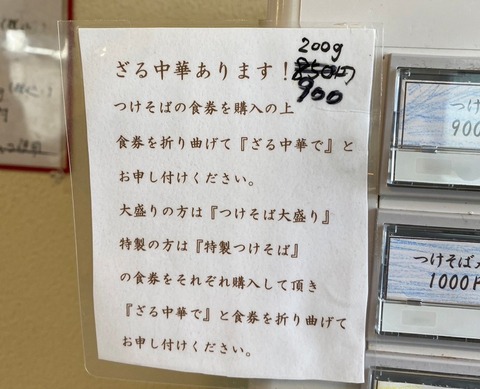 ざる中華あります！850円
200g
900
つけそばの食券を購入の上
食券を折り曲げて『ざる中華で』と
お申し付けください。
大盛りの方は『つけそば大盛り』
特製の方は『特製つけそば』
の食券をそれぞれ購入して頂き
『ざる中華で』と食券を折り曲げて
お申し付けください。
つけ
900
つけそば
1000円